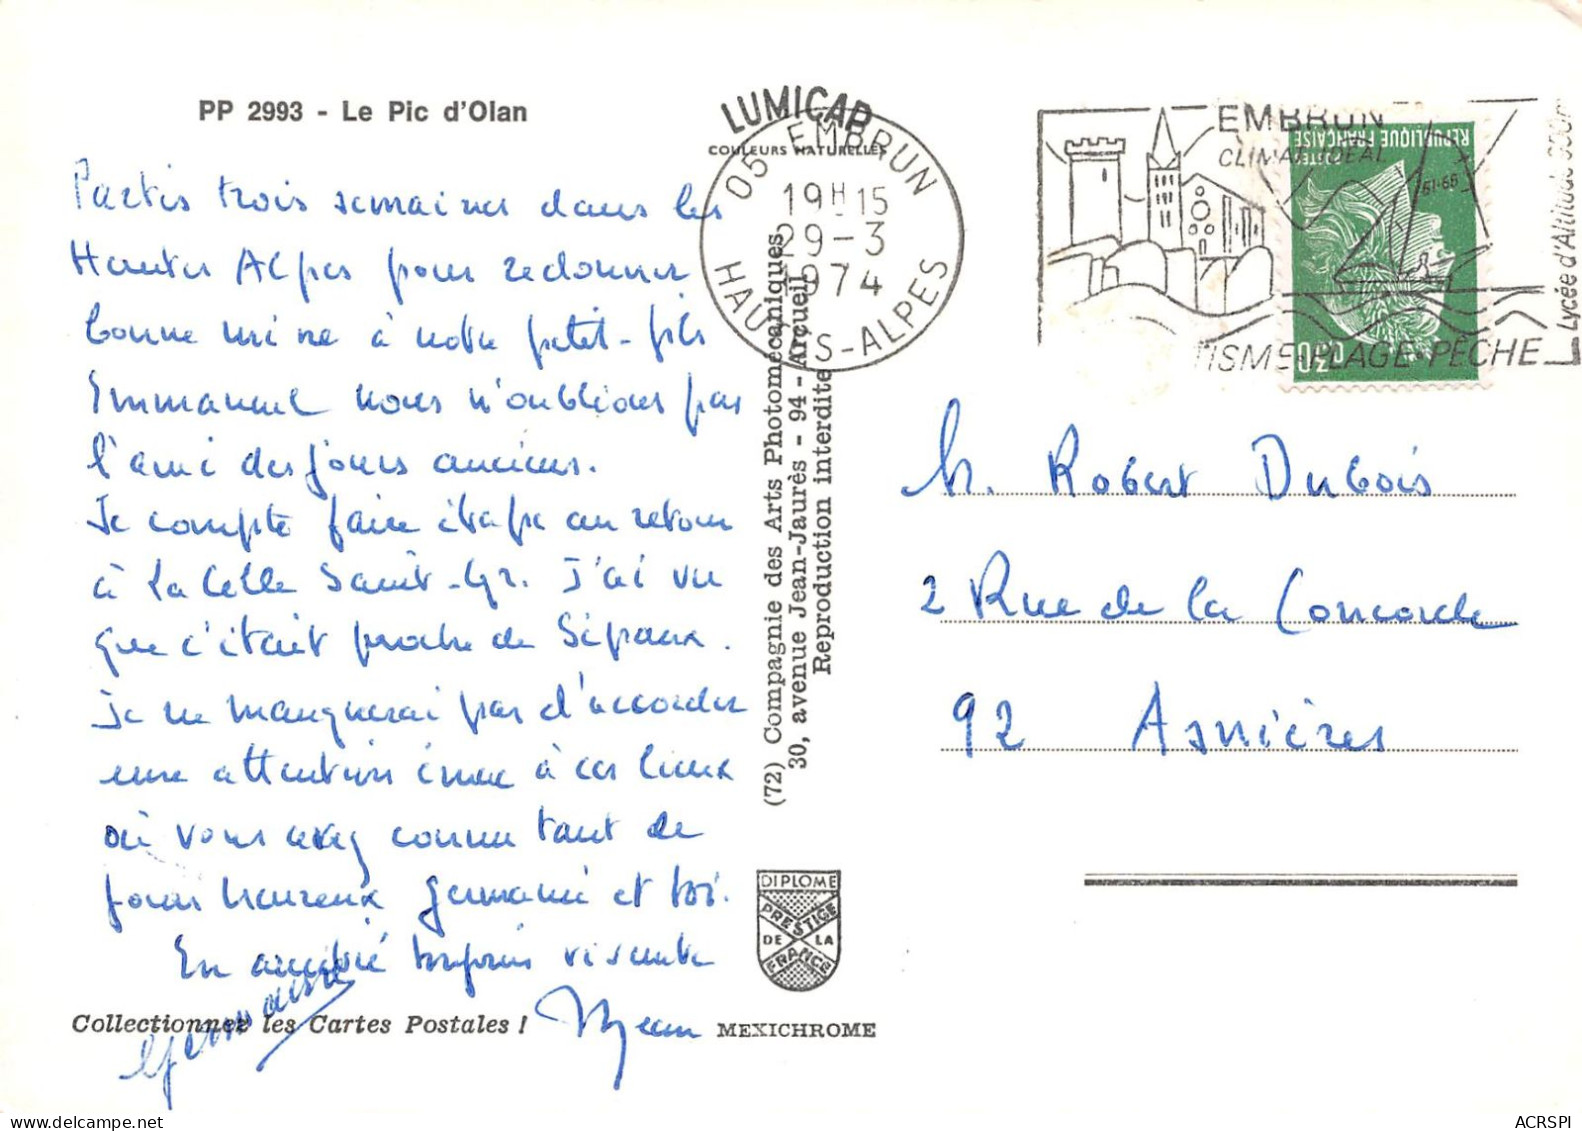 PP 2993 - Le Pic d'Olan
Partis trois semaines dans les
Hautes Alpes pour redonner
bonne mine à notre petit-fils
Emmanuel nous n'oublions pas
l'ami des jours anciens.
Je compte faire étape au retour
à La Celle Saint-Cyr. J'ai vu
que c'était proche de Sépaux.
Je ne manquerai pas d'accorder
une attention émue à ces lieux
où vous avez connu tant de
jours heureux Germaine et toi.
En amitié toujours vivante
Germaine
Jean
Collectionnez les Cartes Postales !
MEXICHROME
LUMICAP
COULEURS NATURELLES
(72) Compagnie des Arts Photomécaniques
30, avenue Jean-Jaurès - 94 - Arcueil
Reproduction interdite
DIPLOME
PRESTIGE
DE LA
FRANCE
05 EMBRUN
19H15
29-3
1974
HAUTES-ALPES
EMBRUN
CLIMAT IDEAL
TISME-PLAGE-PÊCHE
Lycée d'Altitude 900m
REPUBLIQUE FRANÇAISE
POSTES
0,30
M. Robert Dubois
2 Rue de la Concorde
92 Asnières
ACRSPI